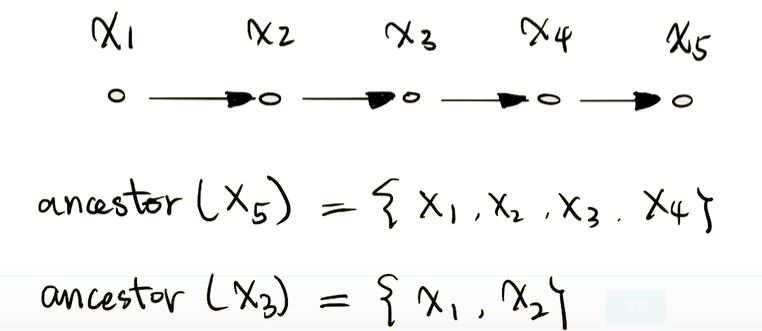 x1 x2 x3 x4 x5
ancestor (x5) = { x1 , x2 , x3 . x4 }
ancestor (x3) = { x1 , x2 }